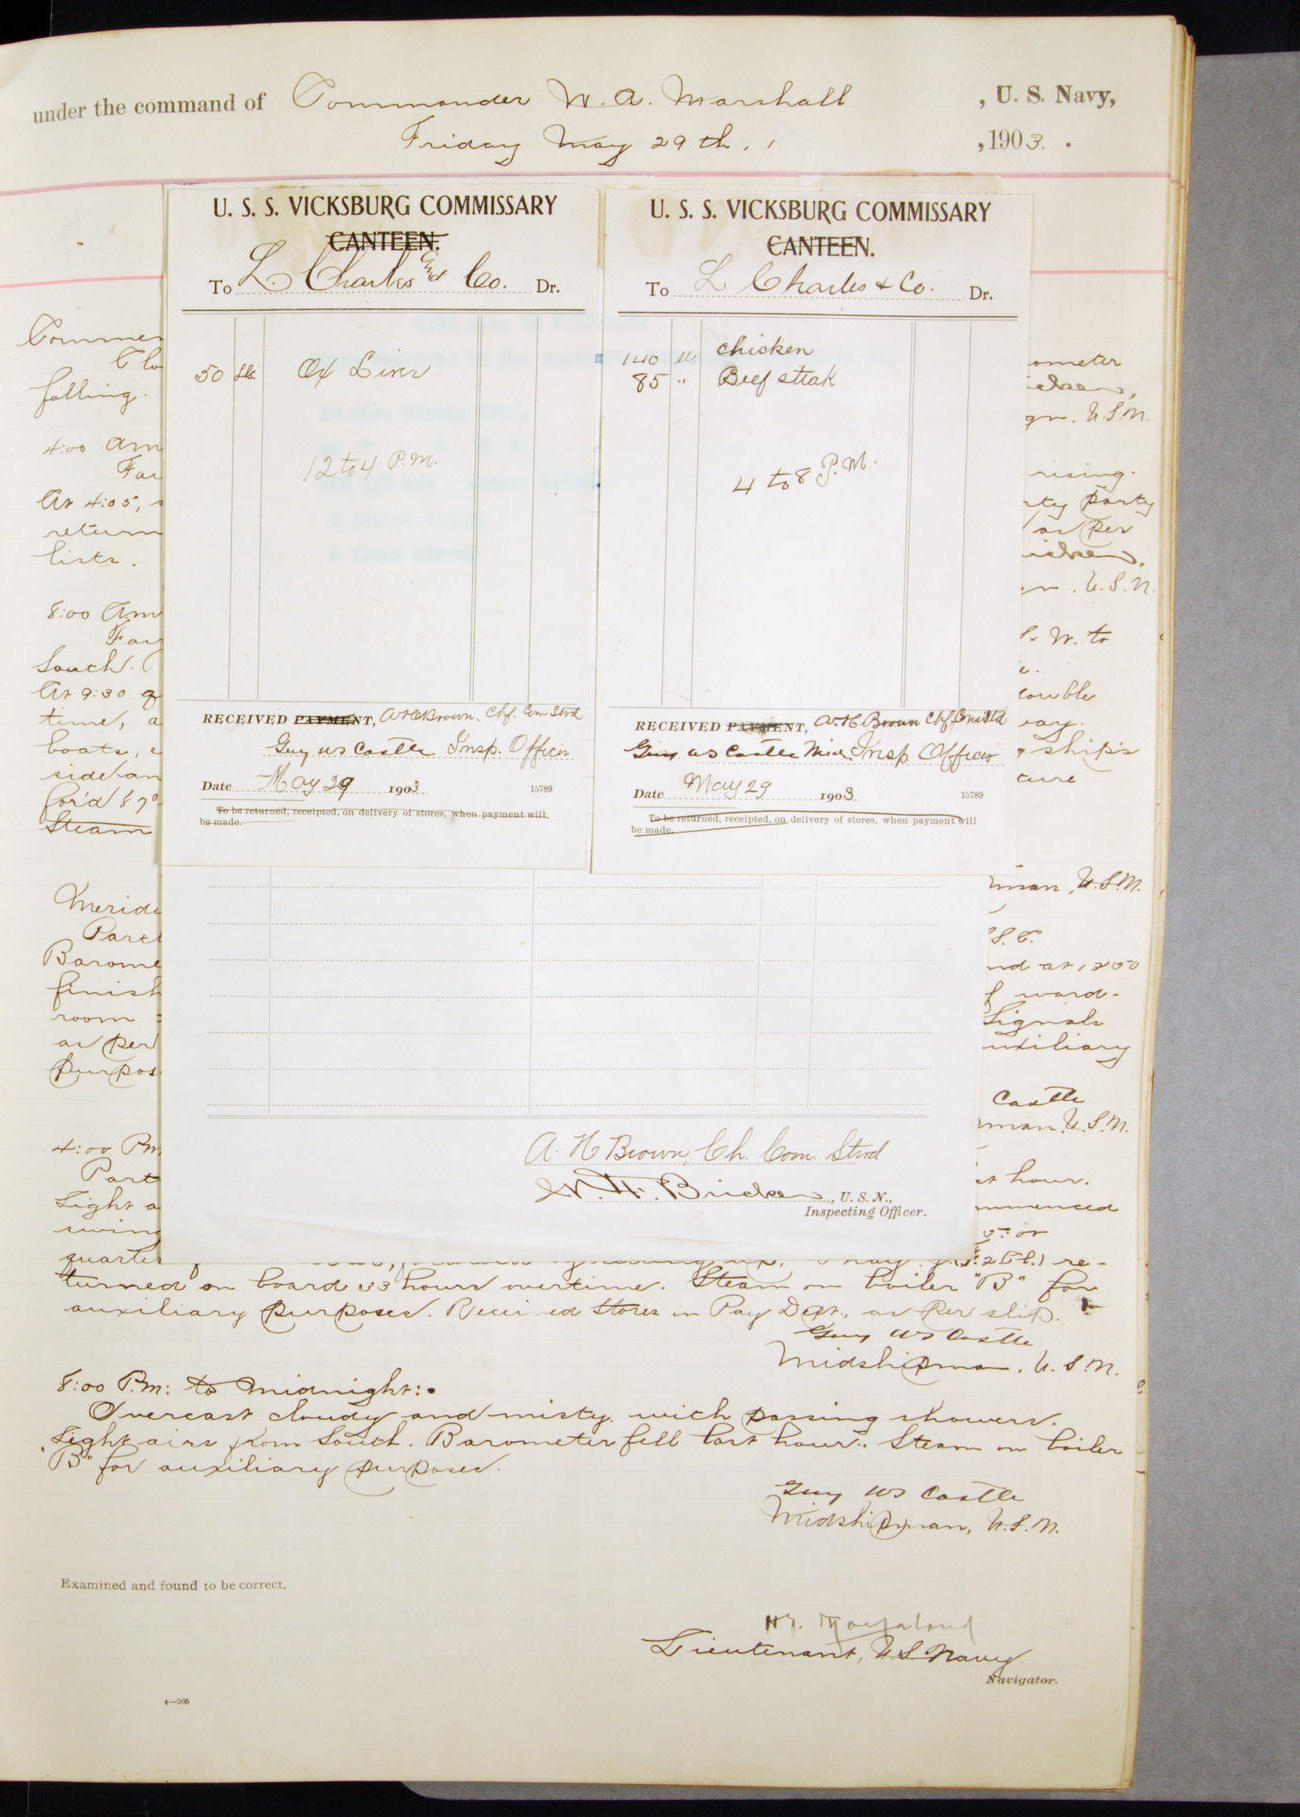 under the command of Commander W. A. Marshall , U. S. Navy,
Friday May 29th, , 1903.
U. S. S. VICKSBURG COMMISSARY
CANTEEN.
To L. Charles and Co. Dr.
50 lbs Ox Liver
12 to 4 P.M.
RECEIVED PAYMENT, A.H. Brown. Chf. Com Strd
Guy WS Castle Insp. Officer
Date May 29 1903 15789
To be returned, receipted, on delivery of stores, when payment will
be made.
U. S. S. VICKSBURG COMMISSARY
CANTEEN.
To L Charles & Co. Dr.
140 lbs chicken
85 " Beef steak
4 to 8 P.M.
RECEIVED PAYMENT, A.H. Brown Chf. Com Std
Guy WS Castle Mid. Insp Officer
Date May 29 1903 15789
To be returned, receipted, on delivery of stores, when payment will
be made.
A. H Brown, Ch. Com. Strd
W. F. Bricker, U. S. N.,
Inspecting Officer.
falling.
4:00 Am
At 4:05,
return
lists.
8:00 Am
South.
At 9:30
time, a
boats,
for'd
Steam
Barome
finish
room
as per
purpos
4:00 Pm
Part
Light a
swing
ometer
gn. U.S.N.
rising.
rty party
as per
gn. U.S.N.
W. to
double
ship's
man, U.S.N.
nd at 1200
of ward-
Signals
auxiliary
Castle
man. U.S.N.
st hour.
mmenced
quarte re-
turned on board 33 hours overtime. Steam on boiler "B" for
auxiliary purposes. Received Stores in Pay Dept., as per slip.
Guy WS Castle
Midshipman, U.S.N.
8:00 P.m: to midnight:
Overcast cloudy and misty with passing showers.
Light airs from South. Barometer fell last hour. Steam on boiler
"B" for auxiliary purposes.
Guy WS Castle
Midshipman, U.S.N.
Examined and found to be correct.
Lieutenant, U.S. Navy
Navigator.
4—206